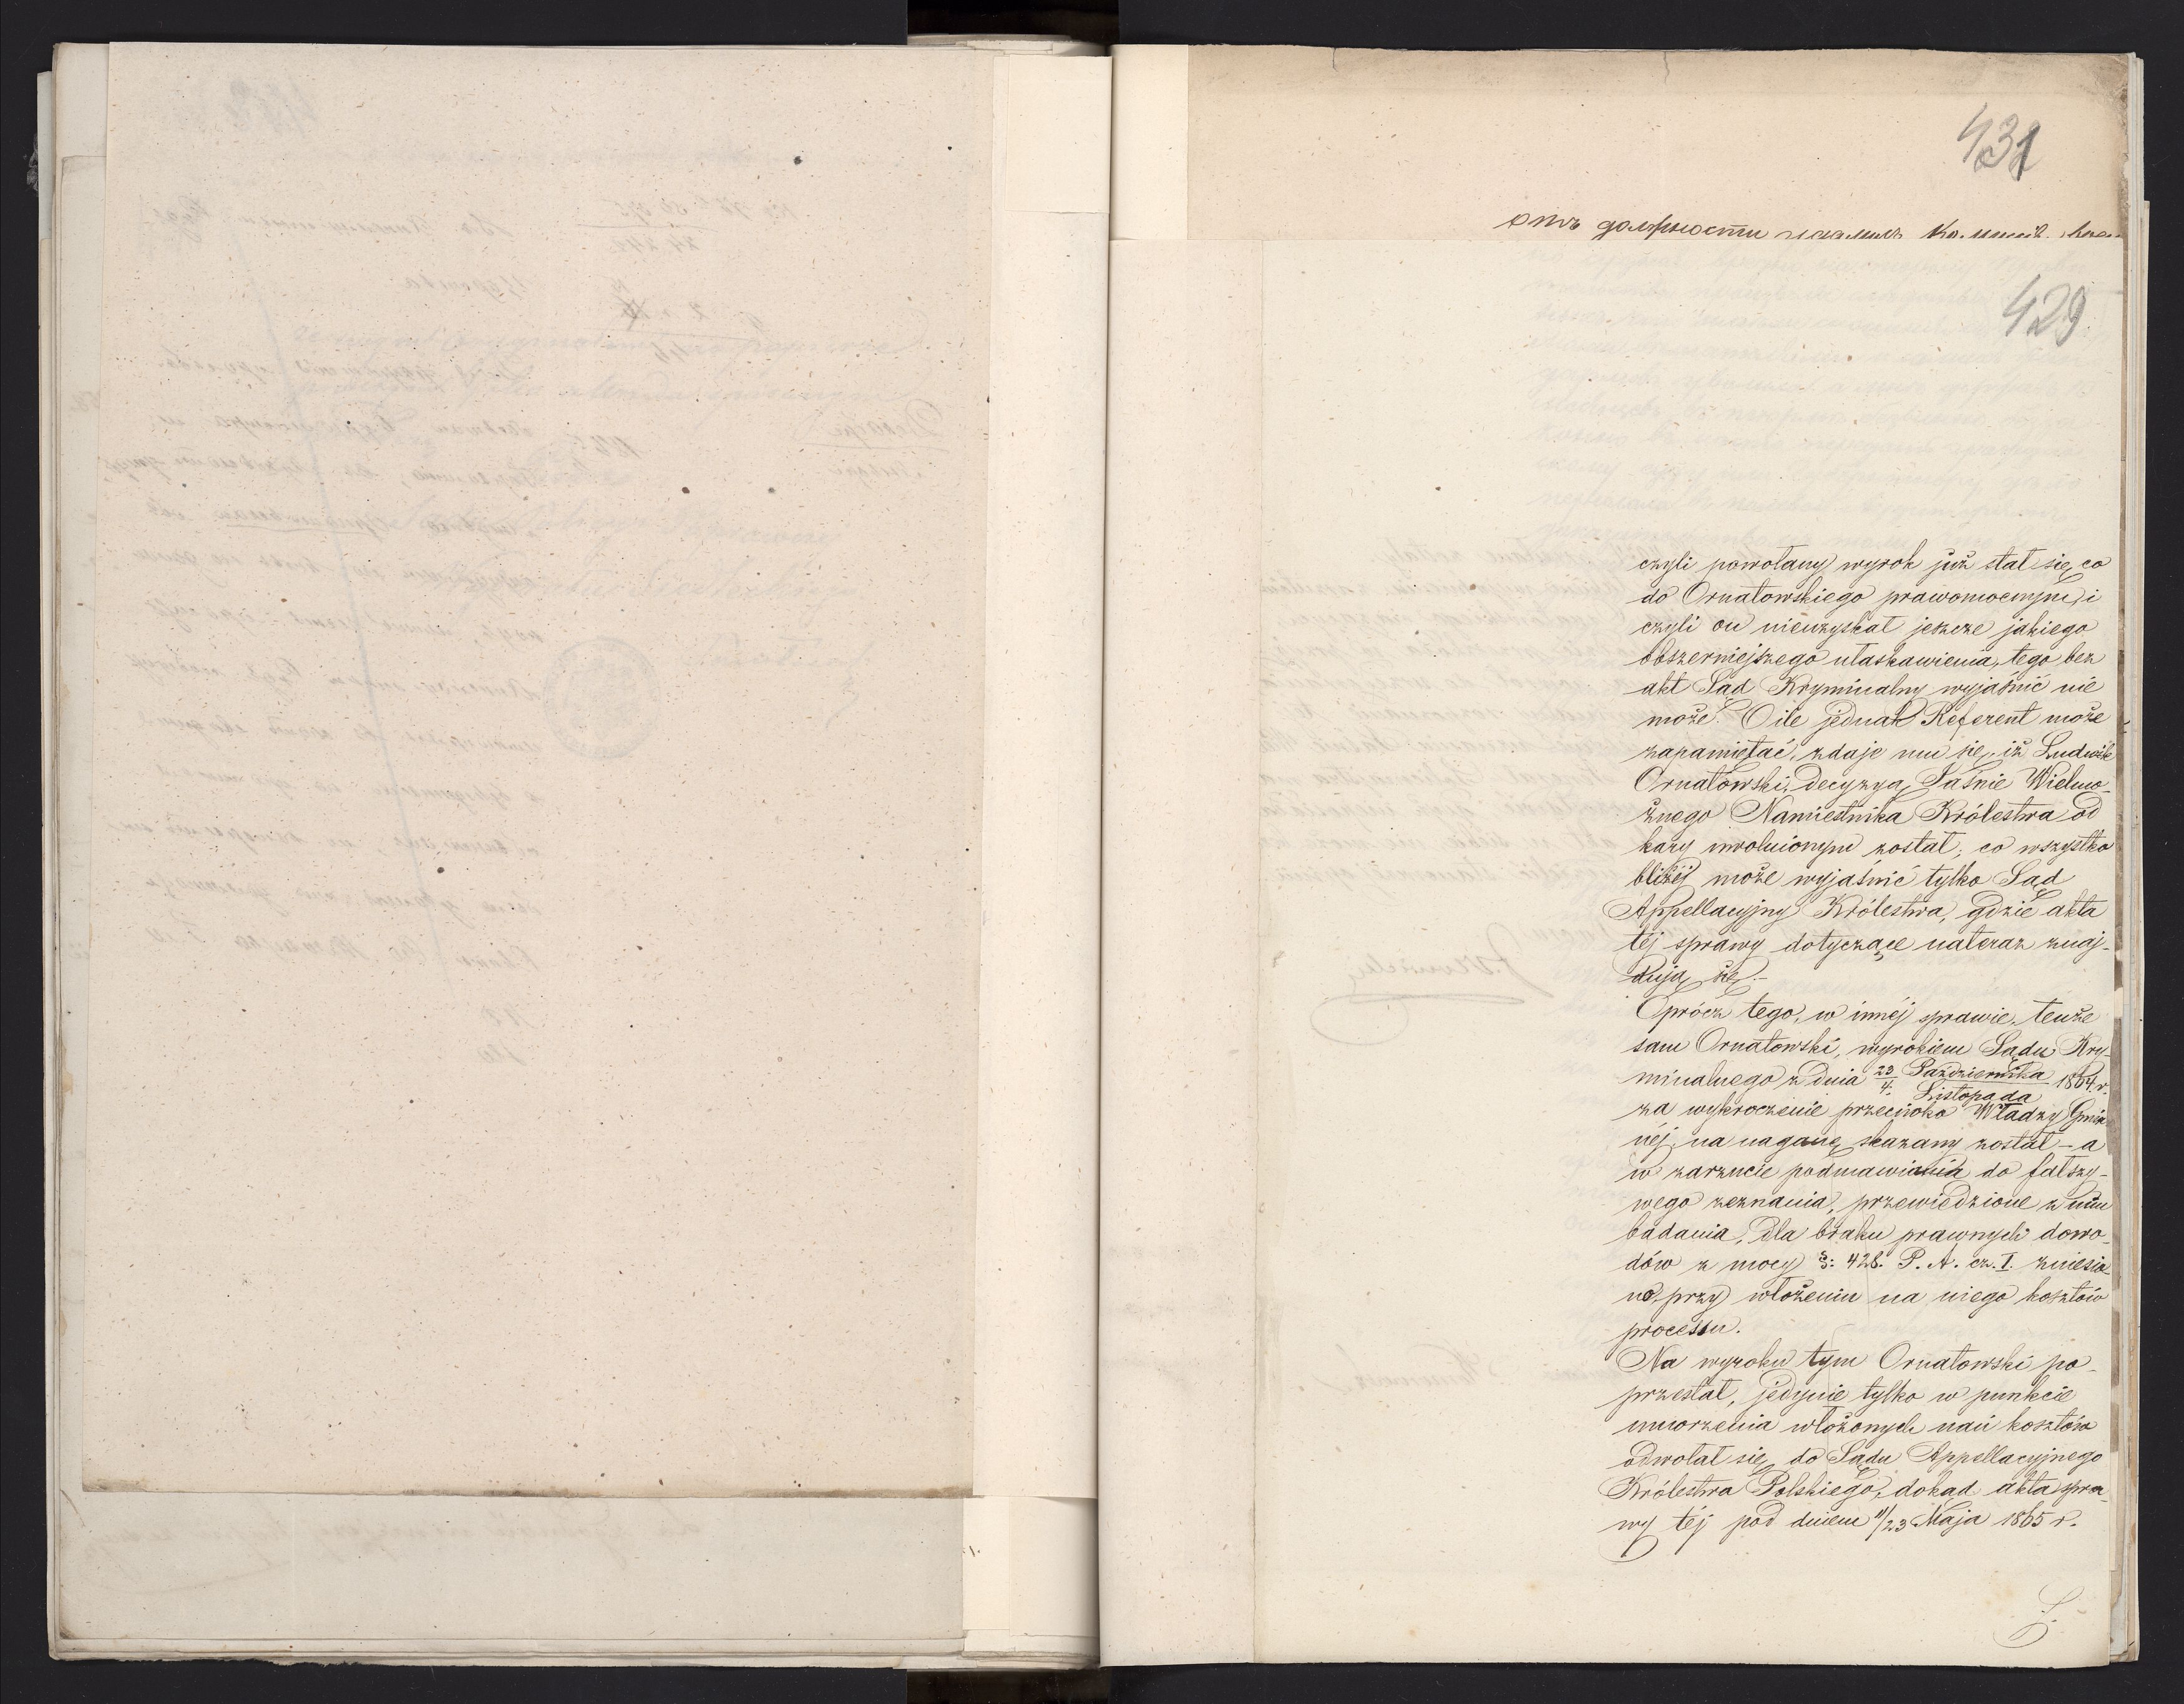 431
отъ должности
429
czyli powołany wyrok już stał się, co
do Ornatowskiego prawomocnym, i
czyli on nieuzyskał jeszcze jakiego
obszerniejszego ułaskawienia, tego bez
akt Sąd Kryminalny wyjaśnić nie
może. O ile jednak Referent może
zapamiętać, zdaje mu się, iż Ludwik
Ornatowski, decyzyą Jaśnie Wielmo-
żnego Namiestnika Królestwa od
kary uwolnionym został, co wszystko
bliżéj może wyjaśnić tylko Sąd
Appellacyjny Królestwa, gdzie akta
téj sprawy dotyczące nateraz znaj-
dują się.-
Oprócz tego, w innéj sprawie, tenże
sam Ornatowski, wyrokiem Sądu Kry-
minalnego z dnia 23/4. Października/Listopada 1864 r.
za wykroczenie przeciwko Władzy Gmin
néj, na naganę skazany został - a
w zarzucie podmawiania do fałszy-
wego zeznania, przewiedzione z nim
badania, dla braku prawnych dowo-
dów z mocy §: 428. P. A. cz. I. zniesio-
no, przy włożeniu na niego kosztów
processu.
Na wyroku tym Ornatowski po-
przestał, jedynie tylko w punkcie
umorzenia włożonych nań kosztów
odwołał się, do Sądu Appellacyjnego
Królestwa Polskiego, dokąd akta spra-
wy téj pod dniem 11/23 Maja 1865 r.